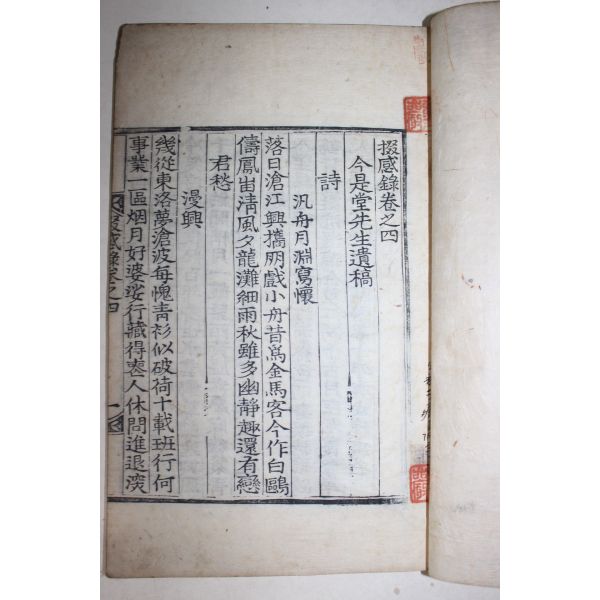 掇感錄卷之四
今是堂先生遺稿
詩
汎舟月淵寫懷
落日滄江興攜朋戲小舟昔爲金馬客今作白鷗
儔鳳出淸風夕龍灘細雨秋雖多幽靜趣還有戀
君愁
漫興
幾從東洛夢滄波每愧靑衫似破荷十載班行何
事業一區烟月好婆娑行藏得喪人休問進退
掇感錄卷之四
一